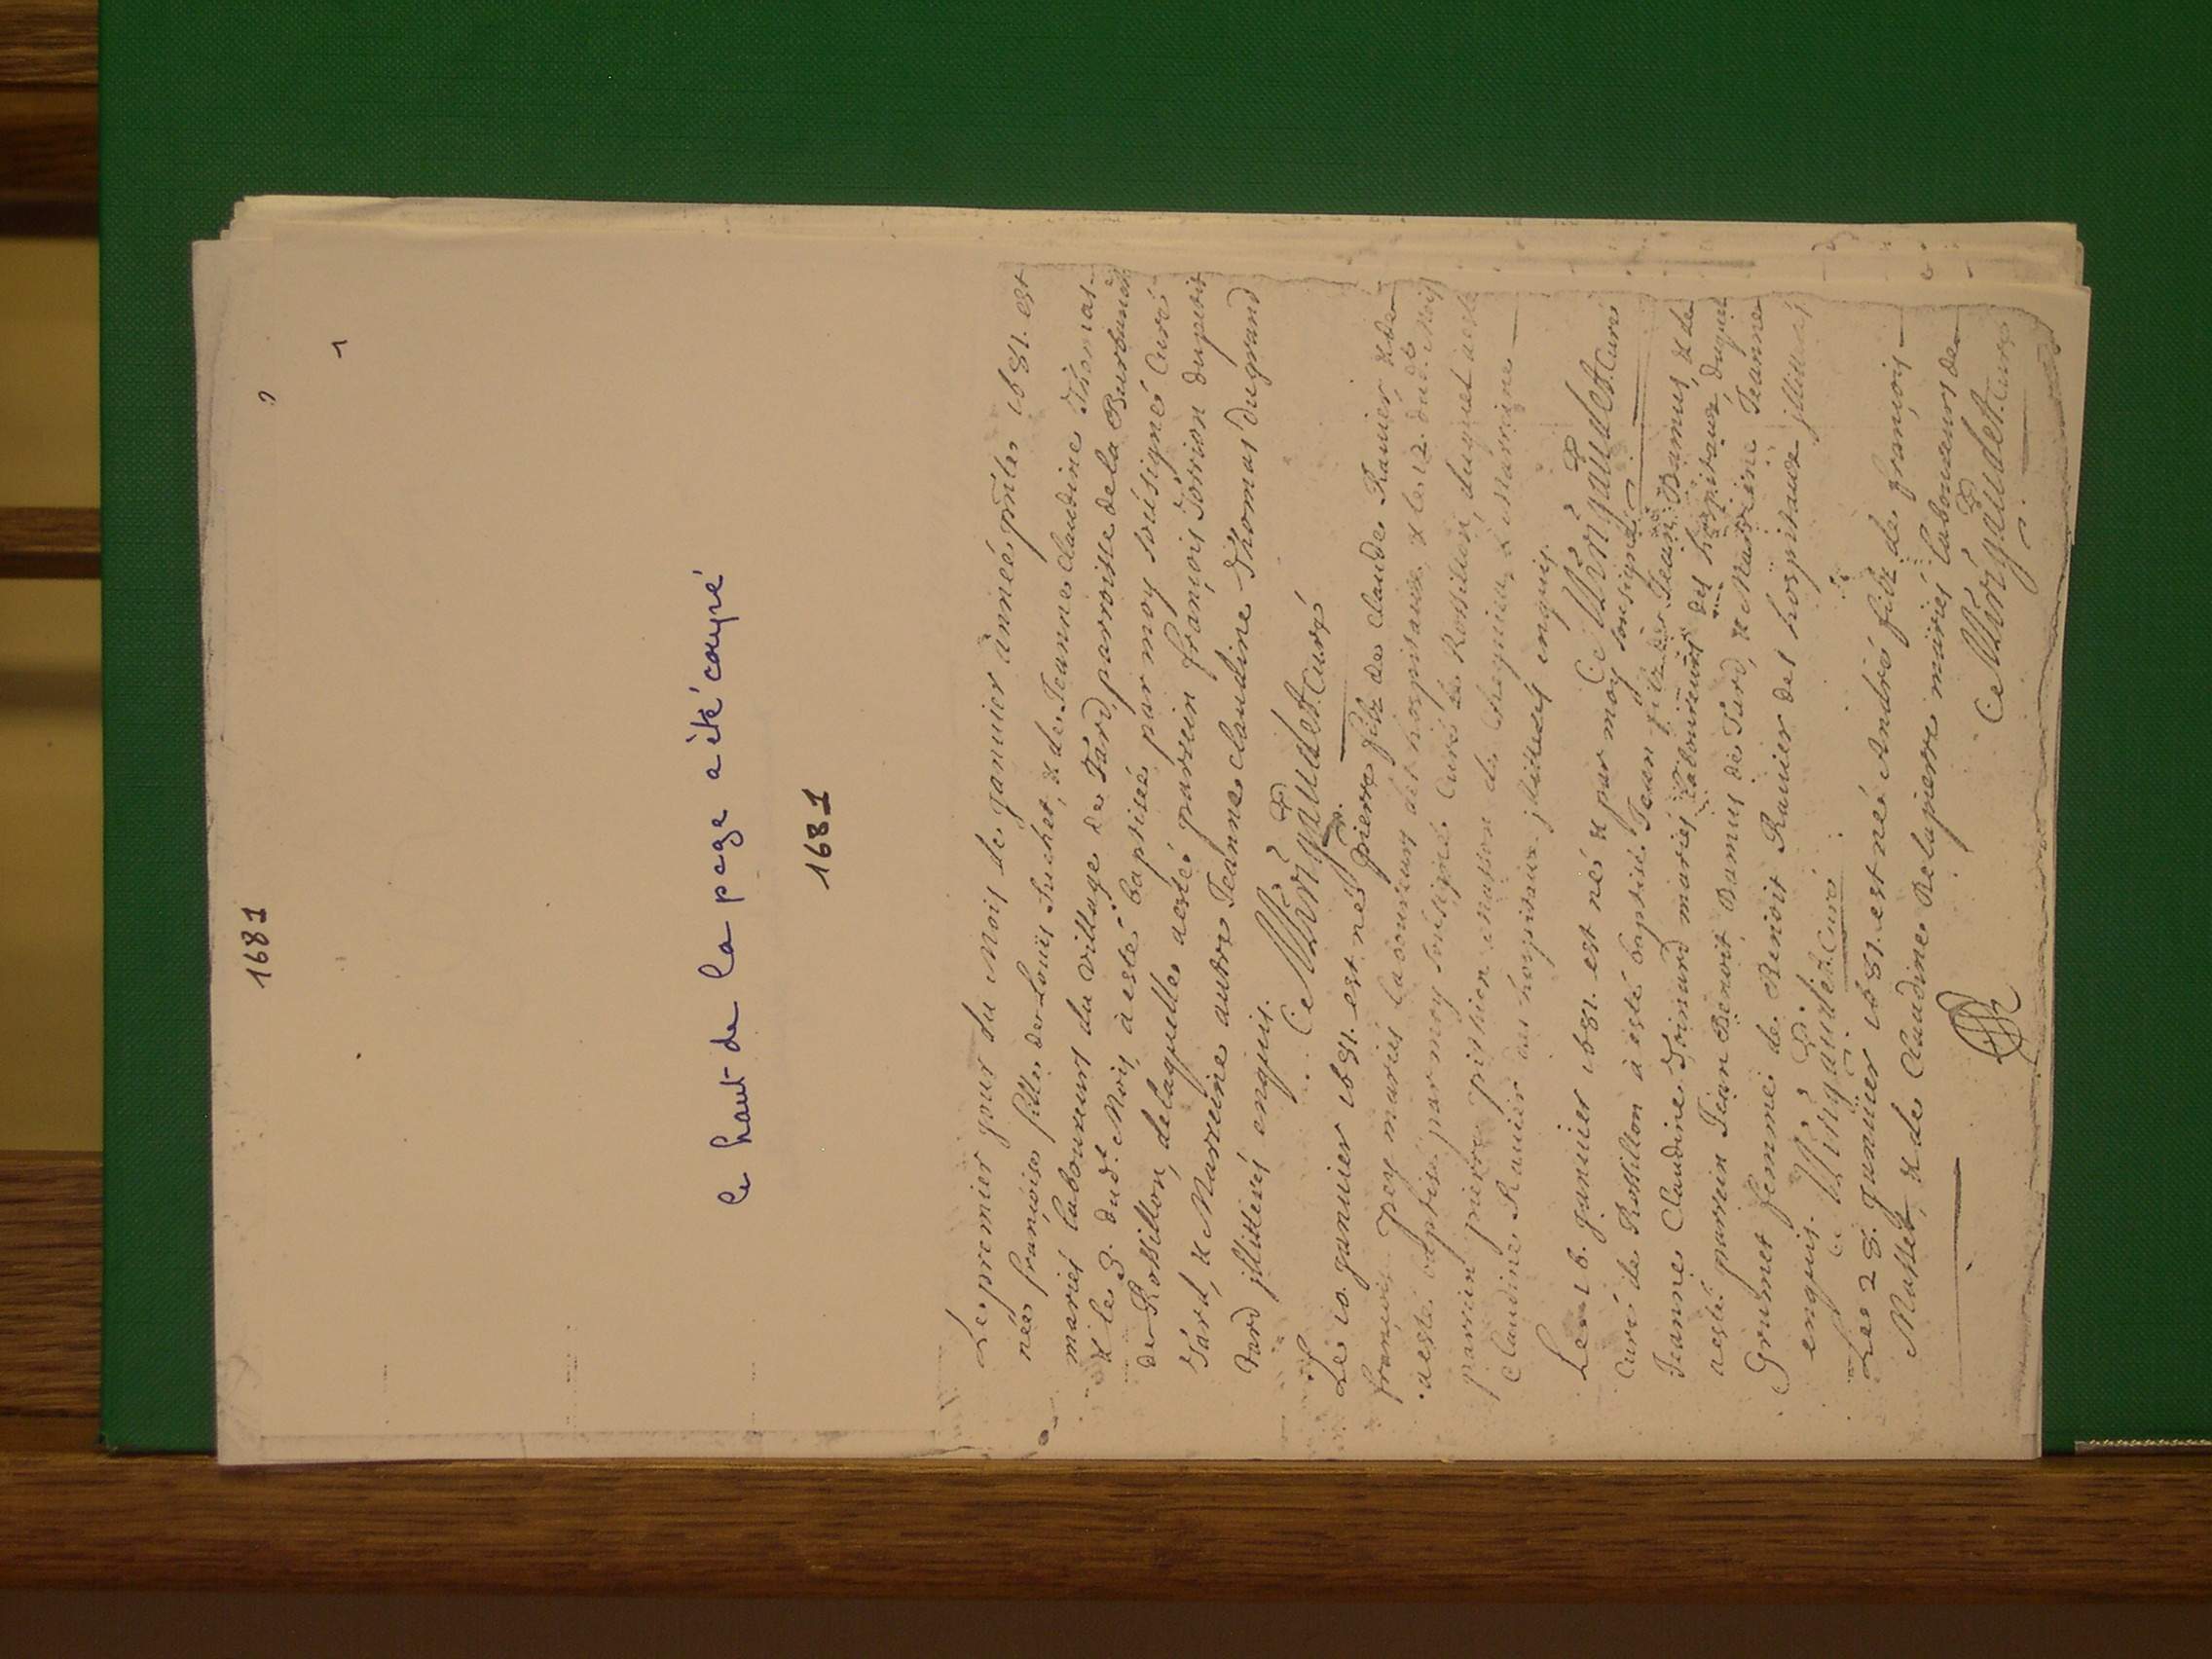 1681
1
le haut de la page a èté coupé
1681
Le premier jour du Mois de janvier année pñtes 1681. est
née françoise fille de Louis Suchet, & de Jeanne Claudine Thomas
mariés laboureurs du village de Tard, parroisse de la Burbanch
& le 3. dud. Mois à esté baptisée par moy soúsigné Curé
de Rossillon, delaquelle aesté parrein françois Torrion dupetit
Tard, & Marreine autre Jeanne Claudine Thomas dugrand
tard illitterés enquis. Ce Mùrigaudet. Curé
Le 10. janvier 1681. est né pierre filz de Claude Ravier, & de
françoise pey mariés laboureurs des hospitaux, & le 12. dud. Mois
aesté baptisé par moy soúsigné Curé de Rossillon, duquel aesté
parrein pierre masson de Cheignieu, & Marreine
Claudine Ravier des hospitaux illitterés enquis.
Le 16. janvier 1681. est né & par moy soúsigné
Curé de Rossillon à esté baptisé Jean filz de Jean Bamus, & de
Jeanne Claudine mariés laboureurs des hospitaux, duquel
aesté parrein Jean Benoit Bamus de Tard, & Marreine Jeanne
Grumet femme de Benoit Ravier des hospitaux illitterés
enquis. Ce Mùrigaudet. Curé
Le 28. Janvier 1681. est né André filz de françois
Masset, & de Claudine Delapierre mariés laboureurs de
Ce Mùrigaudet. Curé